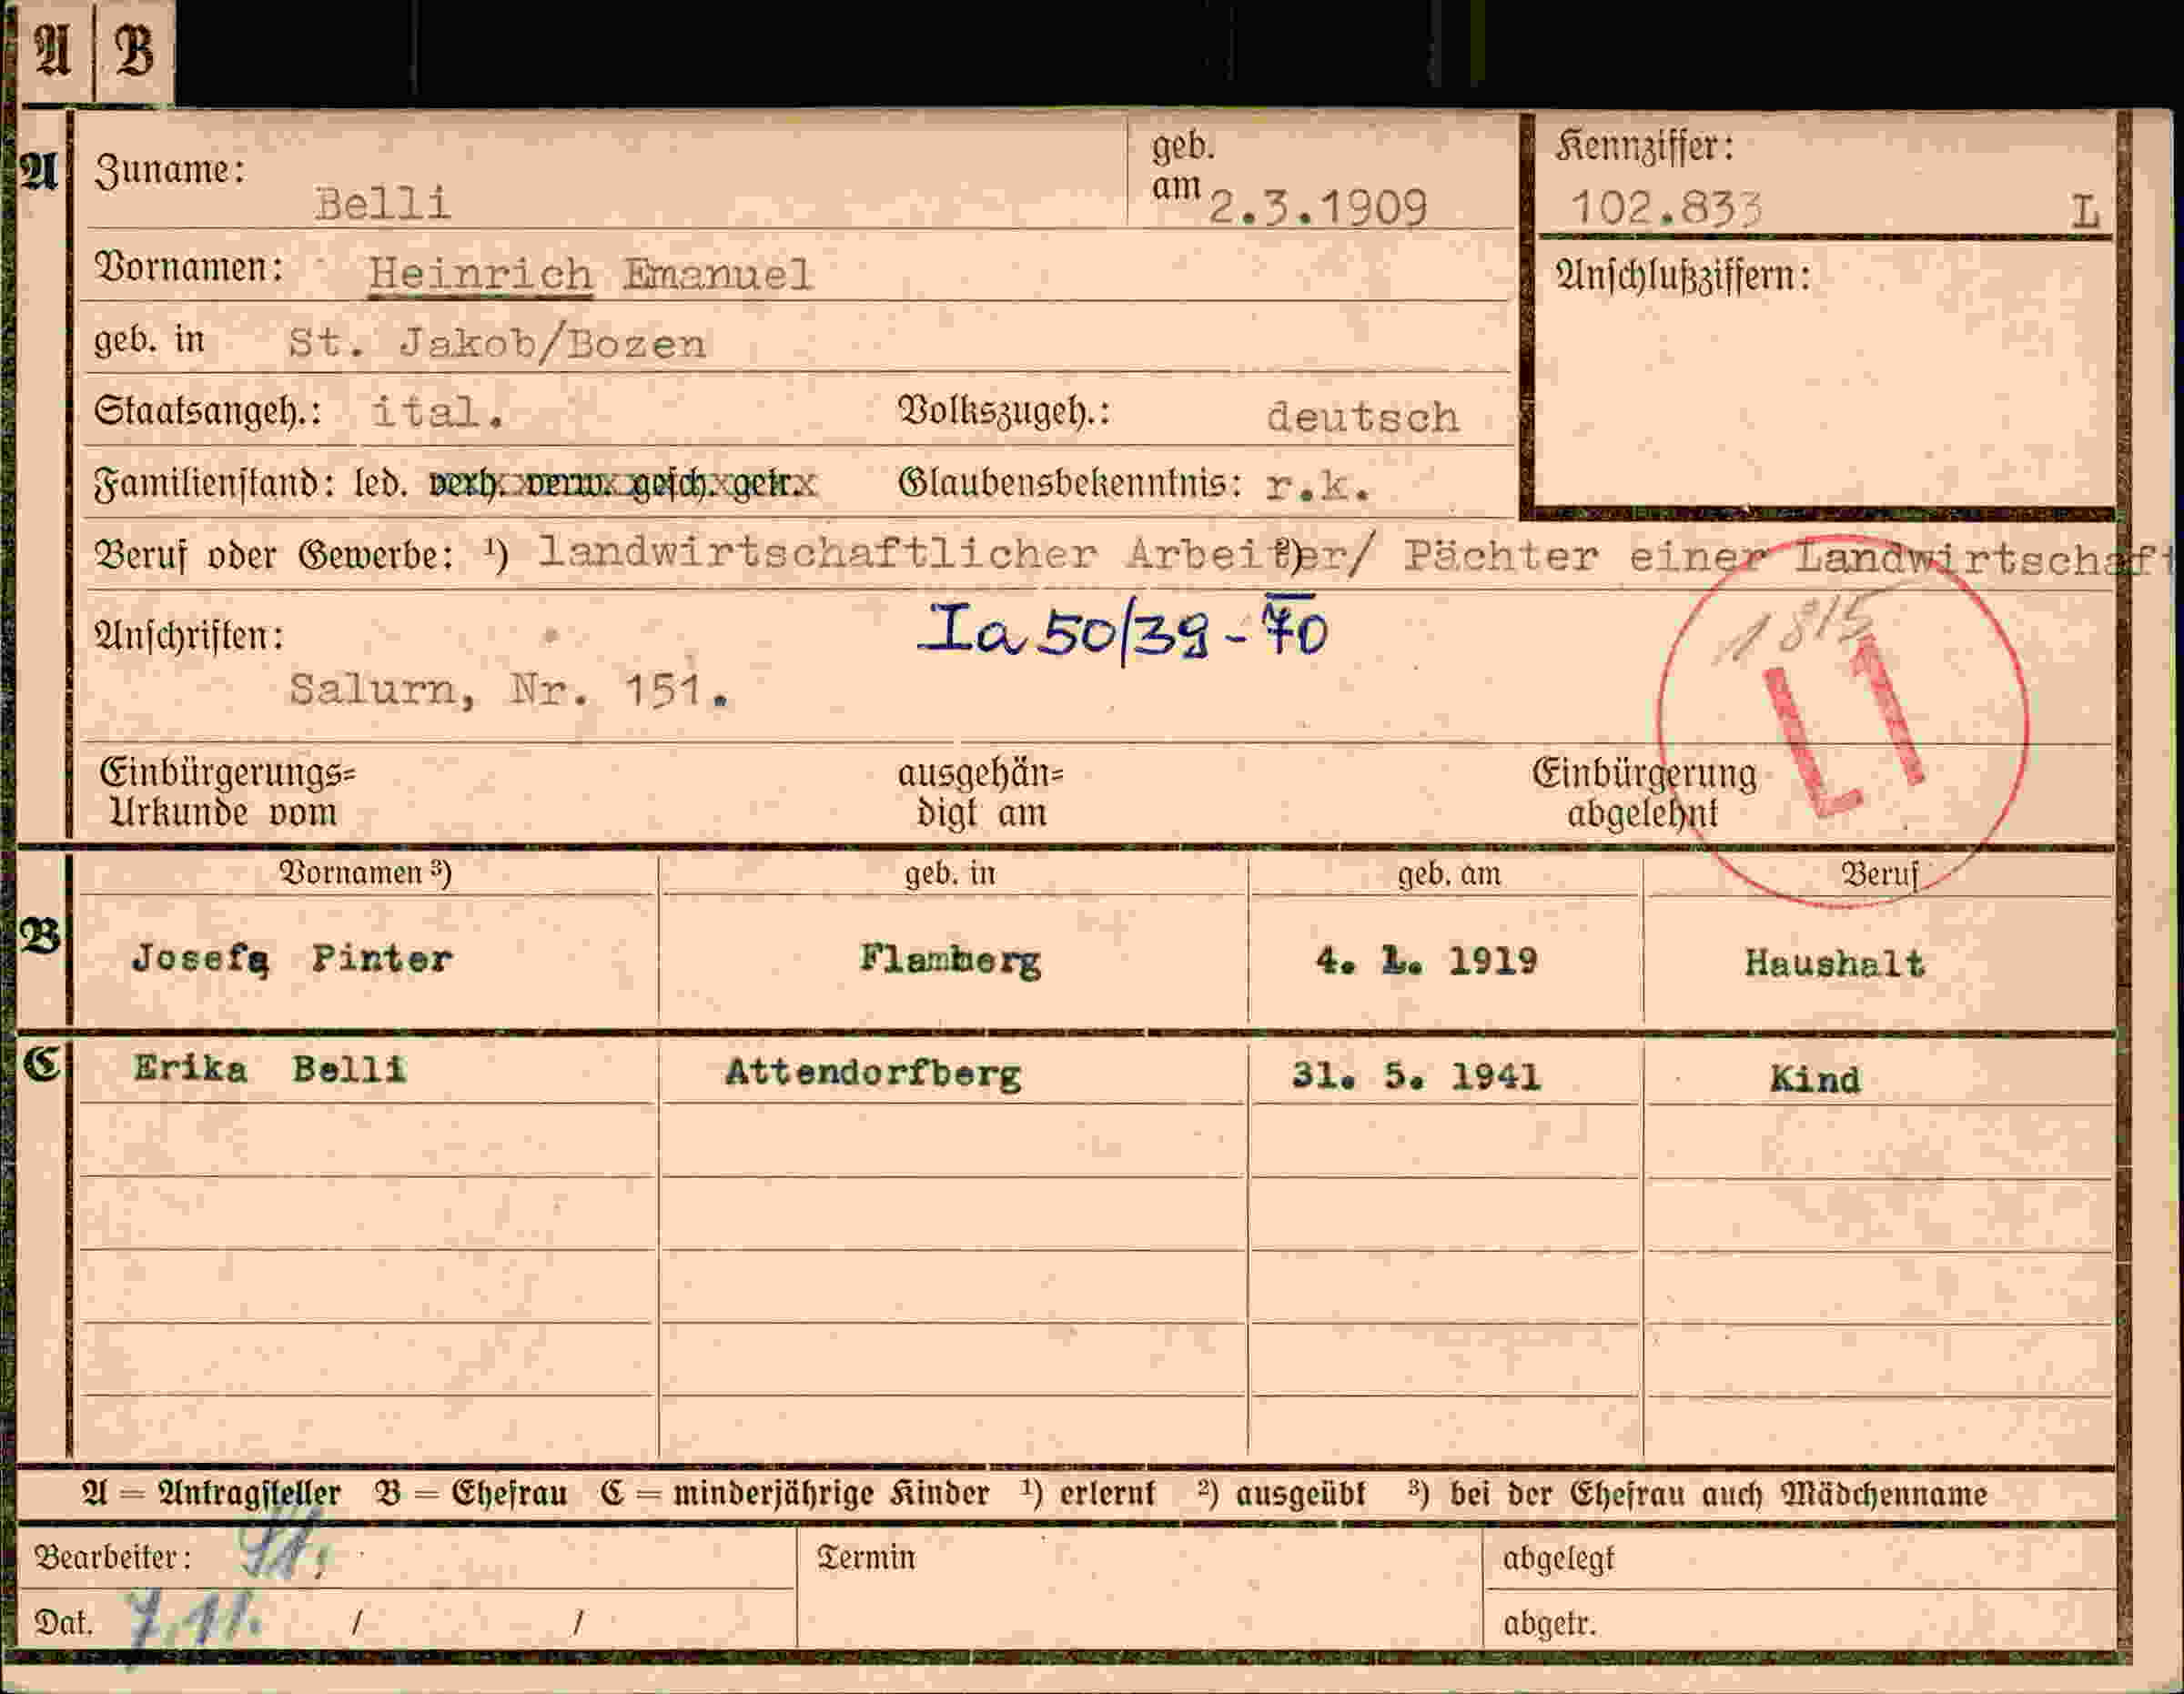 A B
A Zuname: Belli geb. am 2.3.1909 Kennziffer: 102.833 L
Vornamen: Heinrich Emanuel Anschlußziffern:
geb. in St. Jakob/Bozen
Staatsangeh.: ital. Volkszugeh.: deutsch
Familienstand: led. verh. verw. gesch. getr. Glaubensbekenntnis: r.k.
Beruf oder Gewerbe: ¹) landwirtschaftlicher Arbeiter/ ²) Pächter einer Landwirtschaft
Anschriften: Ia 50/39-70 1815
Salurn, Nr. 151. L1
Einbürgerungs= ausgehän= Einbürgerung
Urkunde vom digt am abgelehnt
Vornamen ³) geb. in geb. am Beruf
B Josefa Pinter Flamberg 4. 1. 1919 Haushalt
C Erika Belli Attendorfberg 31. 5. 1941 Kind
A = Antragsteller B = Ehefrau C = minderjährige Kinder ¹) erlernt ²) ausgeübt ³) bei der Ehefrau auch Mädchenname
Bearbeiter: Termin abgelegt
Dat. 7.11. / / abgetr.